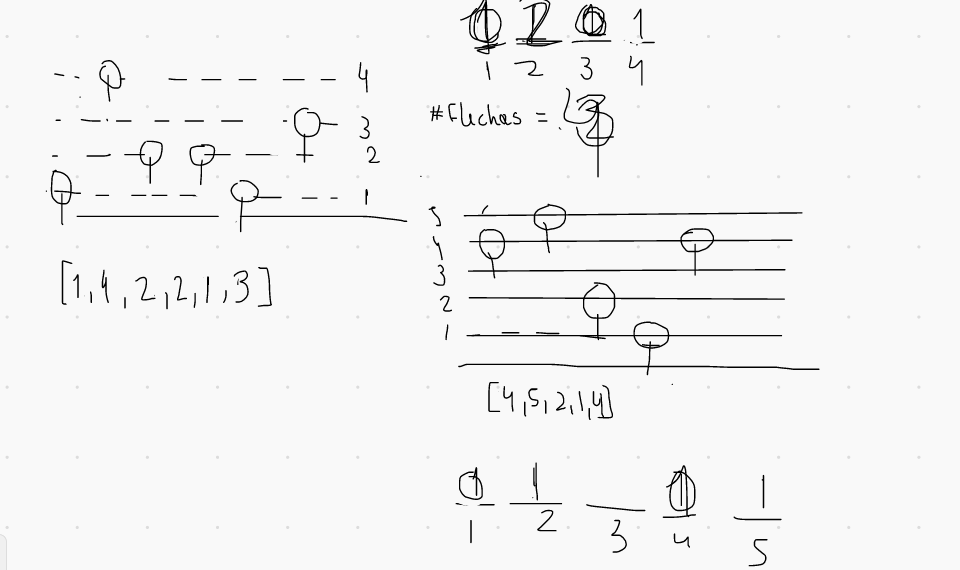 4
3
2
1
[1,4,2,2,1,3]
1
1 2 3 4
#Flechas =
5
4
3
2
1
[4,5,2,1,4]
1 1
1 2 3 4 5